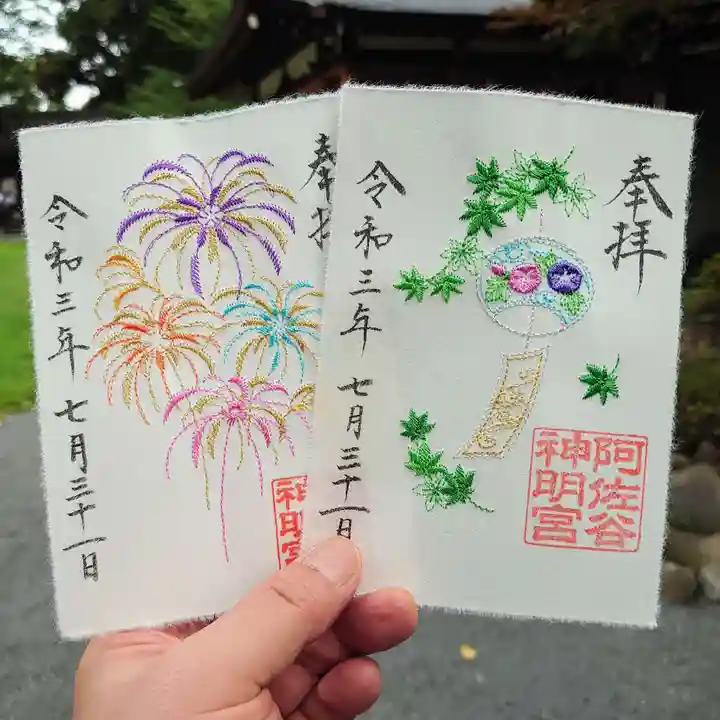 奉拝
令和三年 七月三十一日
阿佐谷
神明宮
奉拝
令和三年 七月三十一日
神明宮